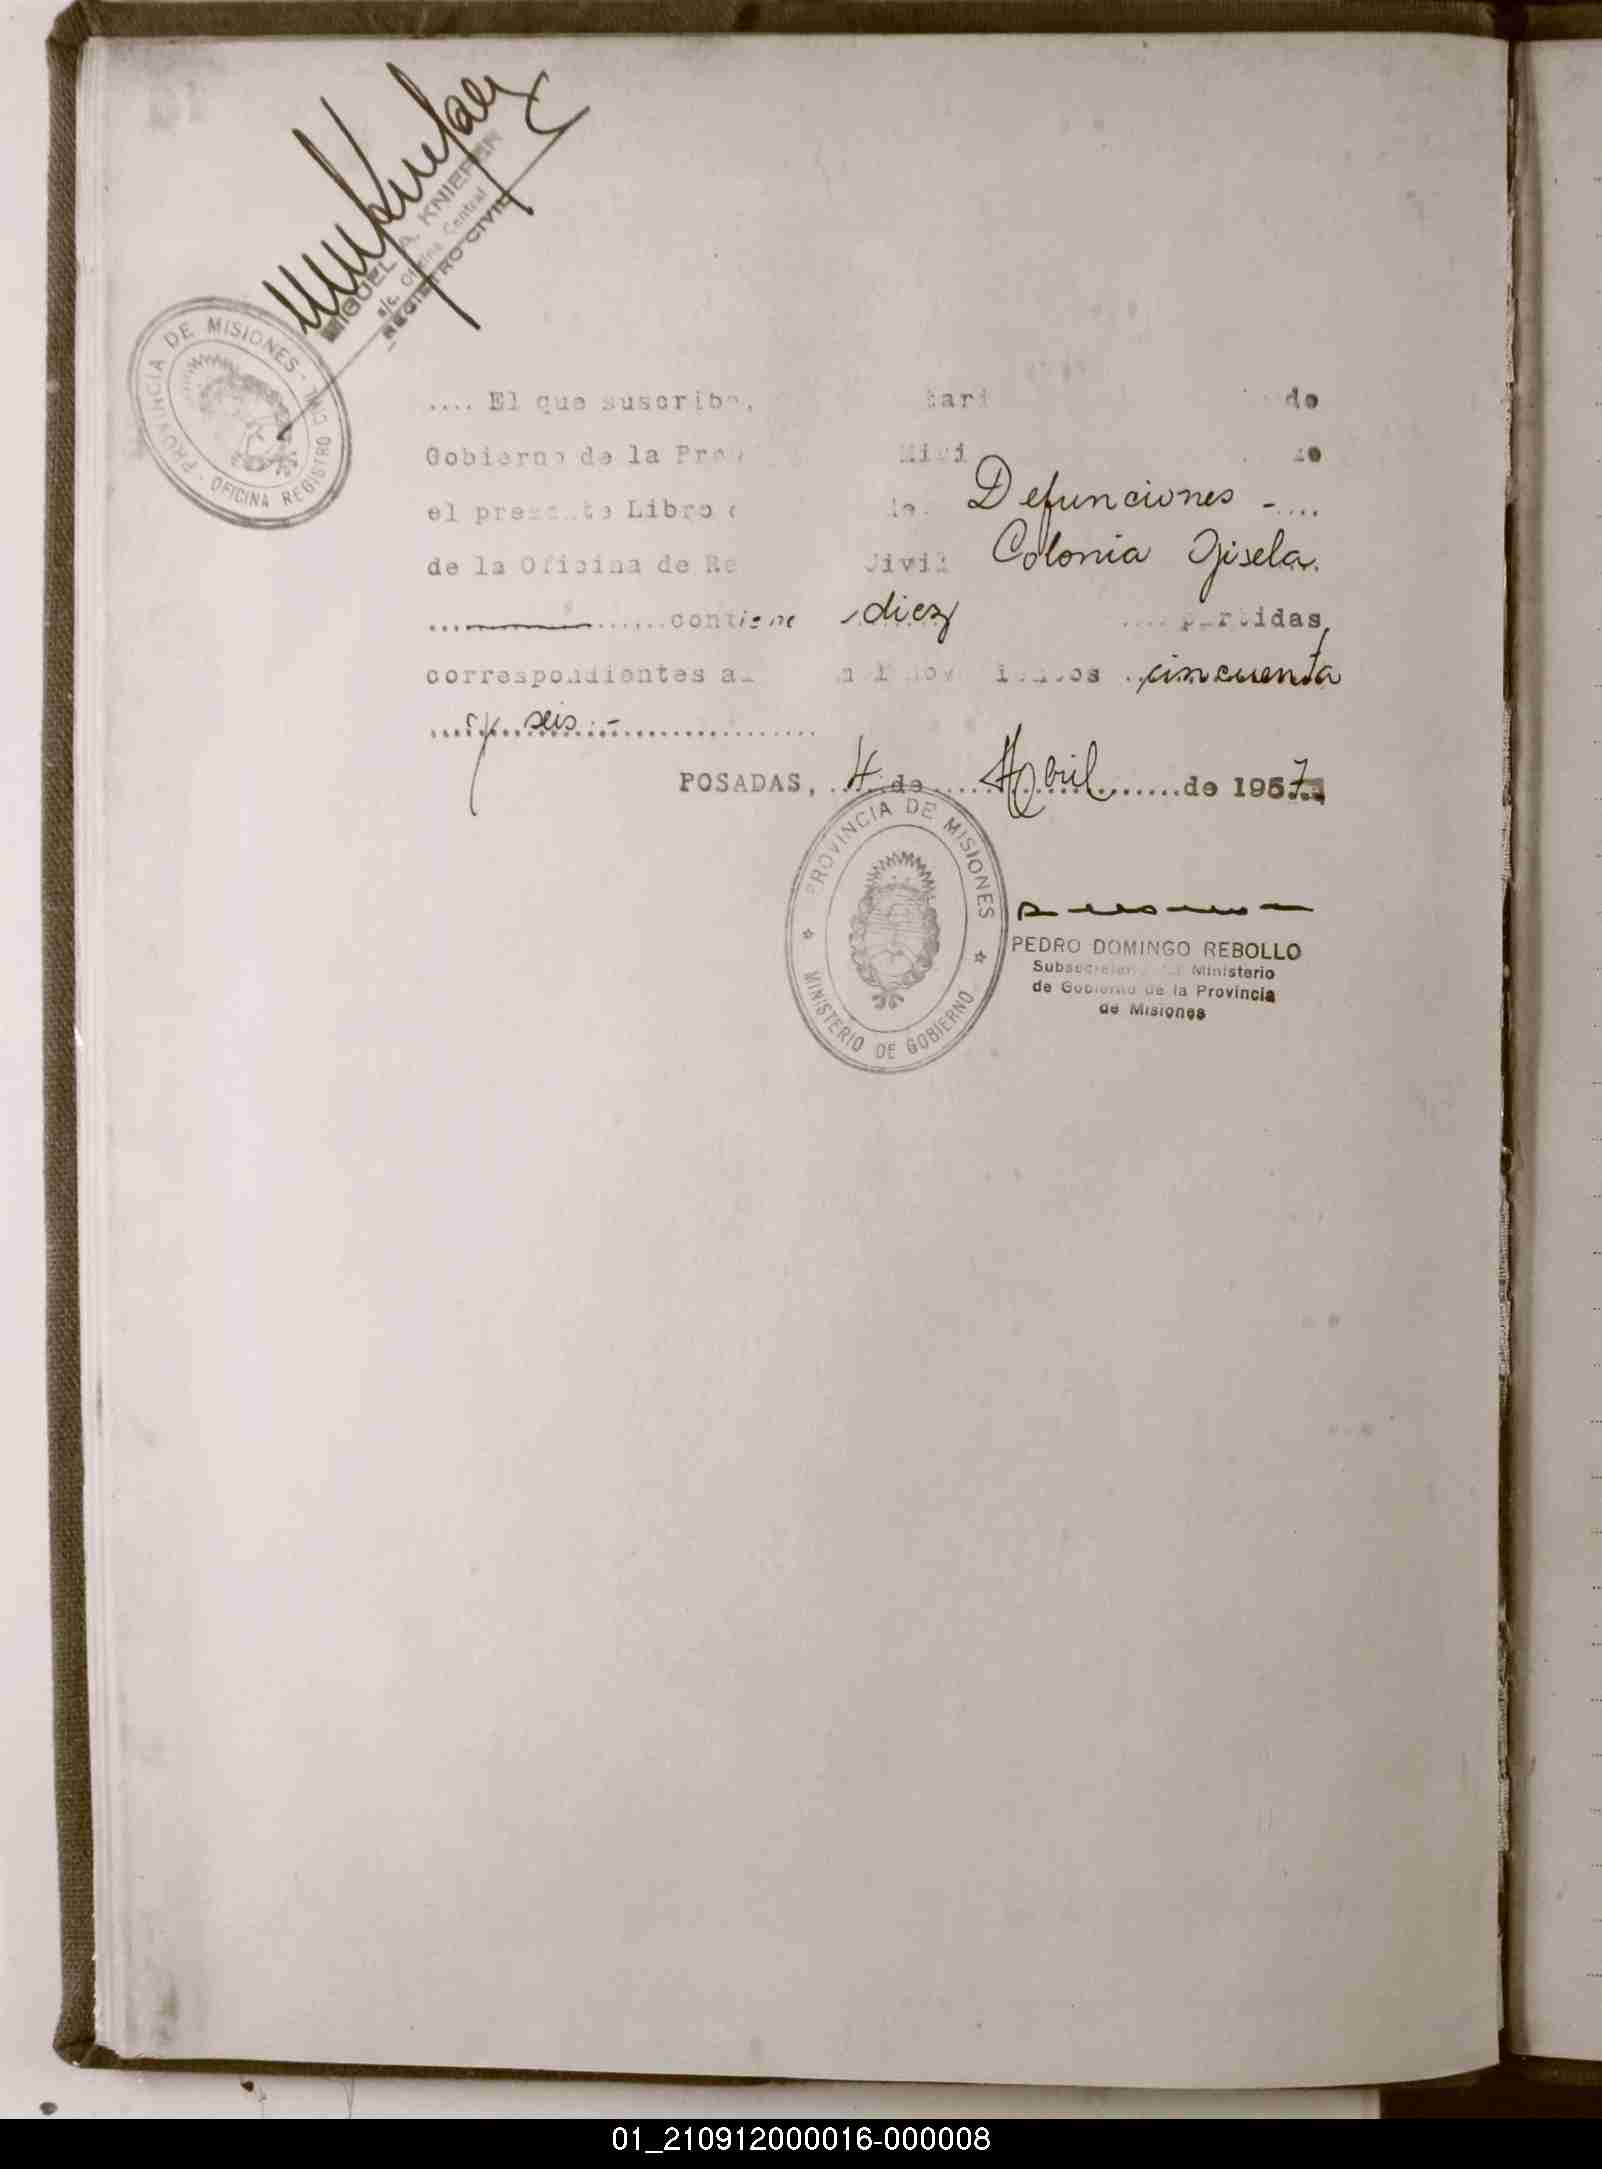 MIGUEL A. KNIEPER
a/c. Oficina Central
REGISTRO CIVIL
PROVINCIA DE MISIONES - OFICINA REGISTRO CIVIL
.... El que suscribe, de
Gobierno de la
el presente Libro Defunciones -....
de la Oficina de Civil Colonia Gisela.
............contiene diez .... partidas,
correspondientes cincuenta
y seis.-
POSADAS, 4 de Abril de 1957
PROVINCIA DE MISIONES
MINISTERIO DE GOBIERNO
PEDRO DOMINGO REBOLLO
Ministerio
de Gobierno de la Provincia
de Misiones
01_210912000016-000008